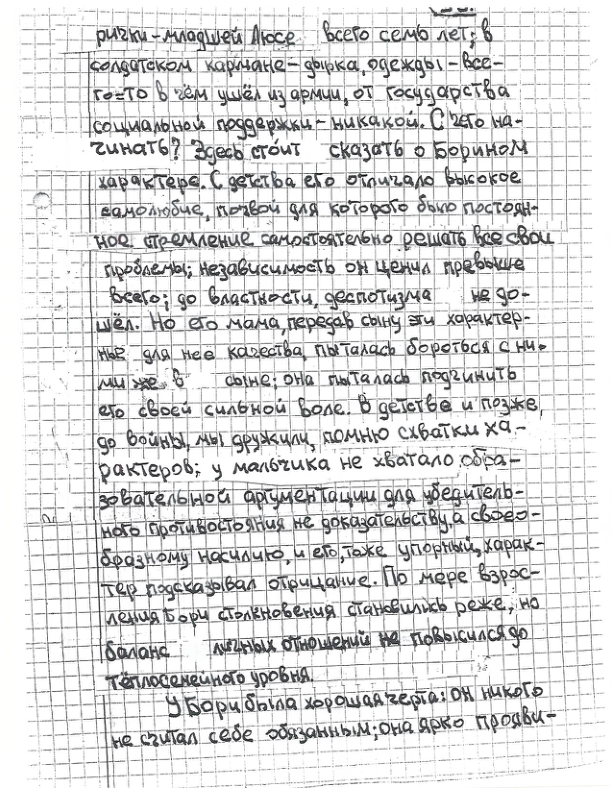 рички-младшей Люсе всего семь лет; в
солдатском кармане-дырка, одежды-все-
го=то в чём ушёл из армии, от государства
социальной поддержки-никакой. С чего на-
чинать? Здесь сто́ит сказать о Борином
характере. С детства его отличало высокое
самолюбие, почвой для которого было постоян-
ное стремление самостоятельно решать все свои
проблемы; независимость он ценил превыше
всего; до властности, деспотизма не до-
шёл. Но его мама, передав сыну эти характер-
ные для неё качества, пыталась бороться с ни-
ми же в сыне; она пыталась подчинить
его своей сильной воле. В детстве и позже,
до войны, мы дружили, помню схватки ха-
рактеров; у мальчика не хватало обра-
зовательной аргументации для убедитель-
ного противостояния не доказательству, а свое-
образному насилию, и его, тоже упорный, харак-
тер подсказывал отрицание. По мере взрос-
ления Бори столкновения становились реже, но
баланс личных отношений не повысился до
тёплосемейного уровня.
У Бори была хорошая черта: он никого
не считал себе обязанным; она ярко прояви-